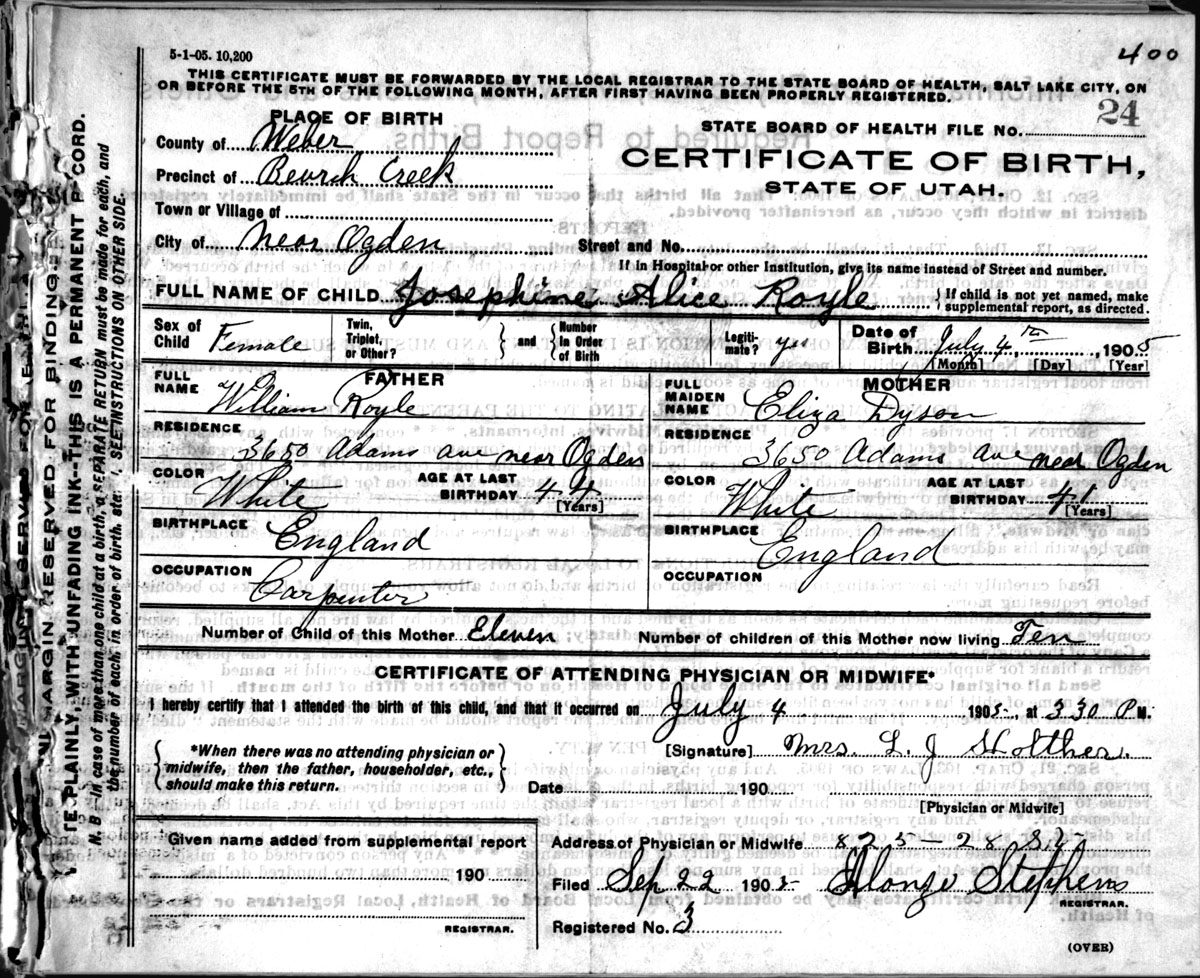 5-1-05. 10,200
400
THIS CERTIFICATE MUST BE FORWARDED BY THE LOCAL REGISTRAR TO THE STATE BOARD OF HEALTH, SALT LAKE CITY, ON
OR BEFORE THE 5TH OF THE FOLLOWING MONTH, AFTER FIRST HAVING BEEN PROPERLY REGISTERED.
PLACE OF BIRTH
County of Weber
Precinct of Beurch Creek
Town or Village of
City of near Ogden
STATE BOARD OF HEALTH FILE NO. 24
CERTIFICATE OF BIRTH,
STATE OF UTAH.
Street and No.
If in Hospital or other Institution, give its name instead of Street and number.
FULL NAME OF CHILD Josephine Alice Royle { If child is not yet named, make
supplemental report, as directed.
Sex of
Child Female
Twin,
Triplet,
or Other?
} and {
Number
in Order
of Birth
Legiti-
mate? yes
Date of
Birth July 4th, 1905
[Month] [Day] [Year]
FATHER
FULL
NAME William Royle
RESIDENCE
3650 Adams ave near Ogden
COLOR
White
AGE AT LAST
BIRTHDAY 44
[Years]
BIRTHPLACE
England
OCCUPATION
Carpenter
MOTHER
FULL
MAIDEN
NAME Eliza Dyson
RESIDENCE
3650 Adams ave near Ogden
COLOR
White
AGE AT LAST
BIRTHDAY 41
[Years]
BIRTHPLACE
England
OCCUPATION
Number of Child of this Mother Eleven
Number of children of this Mother now living Ten
CERTIFICATE OF ATTENDING PHYSICIAN OR MIDWIFE*
I hereby certify that I attended the birth of this child, and that it occurred on July 4 1905, at 330 P M.
{ *When there was no attending physician or
midwife, then the father, householder, etc.,
should make this return. }
[Signature] Mrs. L. J Holther.
Date 190
[Physician or Midwife]
Given name added from supplemental report
190
REGISTRAR.
Address of Physician or Midwife 825-28 St
Filed Sep 22 1905 Alonzo Stephens
REGISTRAR.
Registered No. 3
(OVER)
MARGIN RESERVED FOR BINDING.
PLAINLY, WITH UNFADING INK--THIS IS A PERMANENT
N. B. In case of more than one child at a birth, a SEPARATE RETURN must be made for each, and
the number of each, in order of birth, SEE INSTRUCTIONS ON OTHER SIDE.